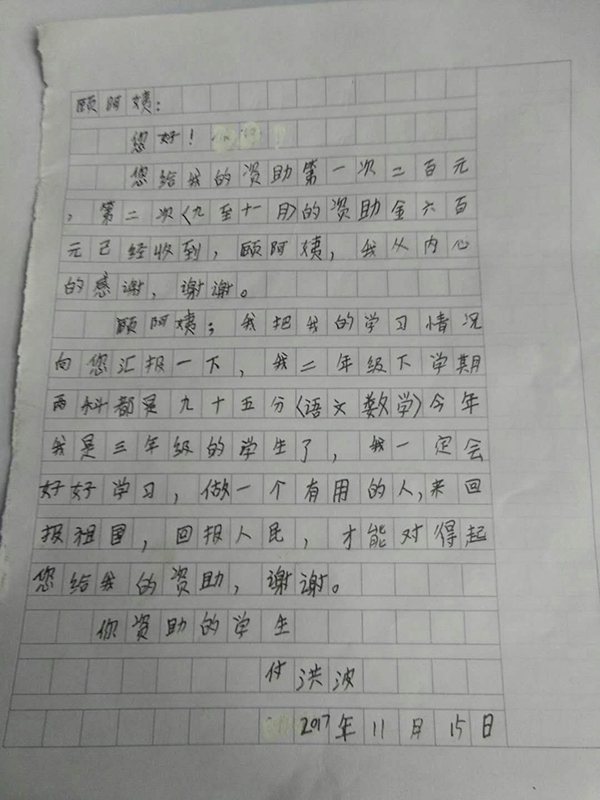 顾阿姨：
您好！
您给我的资助第一次二百元
，第二次〈九至十一月〉的资助金六百
元已经收到，顾阿姨，我从内心
的感谢，谢谢。
顾阿姨；我把我的学习情况
向您汇报一下，我二年级下学期
两科都是九十五分〈语文数学〉今年
我是三年级的学生了，我一定会
好好学习，做一个有用的人，来回
报祖国，回报人民，才能对得起
您给我的资助，谢谢。
你资助的学生
付洪波
2017年11月15日